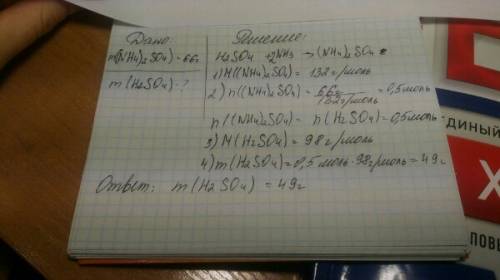 Дано:
m(NH4)2SO4) = 66г
m(H2SO4) - ?
Решение:
H2SO4 + 2NH3 → (NH4)2SO4
1) M((NH4)2SO4) = 132 г/моль
2) n((NH4)2SO4) = 66г / 132 г/моль = 0,5 моль
n((NH4)2SO4) = n(H2SO4) = 0,5 моль.
3) M(H2SO4) = 98 г/моль
4) m(H2SO4) = 0,5 моль · 98 г/моль = 49 г
Ответ: m(H2SO4) = 49 г
ДИНЫЙ
Х
ПОВЫ